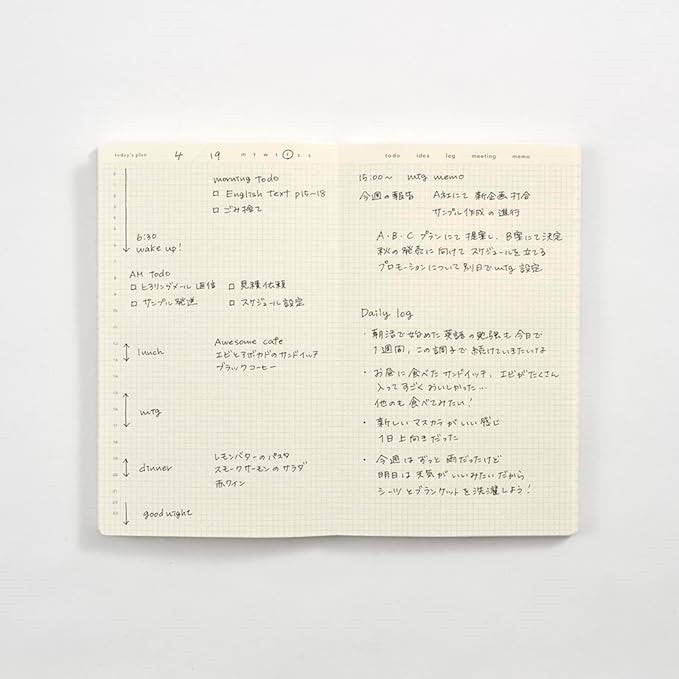 today's plan 4 19 m t w t f s s
morning todo
□ English text p15-18
□ ごみ捨て
6:30
wake up!
AM todo
□ ヒアリングメール返信 □ 見積依頼
□ サンプル発送 □ スケジュール設定
lunch
Awesome cafe
エビとアボカドのサンドイッチ
ブラックコーヒー
mtg
dinner
レモンバターのパスタ
スモークサーモンのサラダ
赤ワイン
good night
todo idea log meeting memo
15:00~ mtg memo
今週の報告 A社にて 新企画打合
サンプル作成の進行
A・B・Cプランにて提案し、B案にて決定
秋の発売に向けてスケジュールを立てる
プロモーションについて別日でmtg設定
Daily log
・朝活で始めた英語の勉強も今日で
1週間、この調子で続けていきたいな
・お昼に食べたサンドイッチ、エビがたくさん
入ってすごくおいしかった…
他のも食べてみたい!
・新しいマスカラがいい感じ
1日上向きだった
・今週はずっと雨だったけど
明日は天気がいいみたいだから
シーツとブランケットを洗濯しよう!